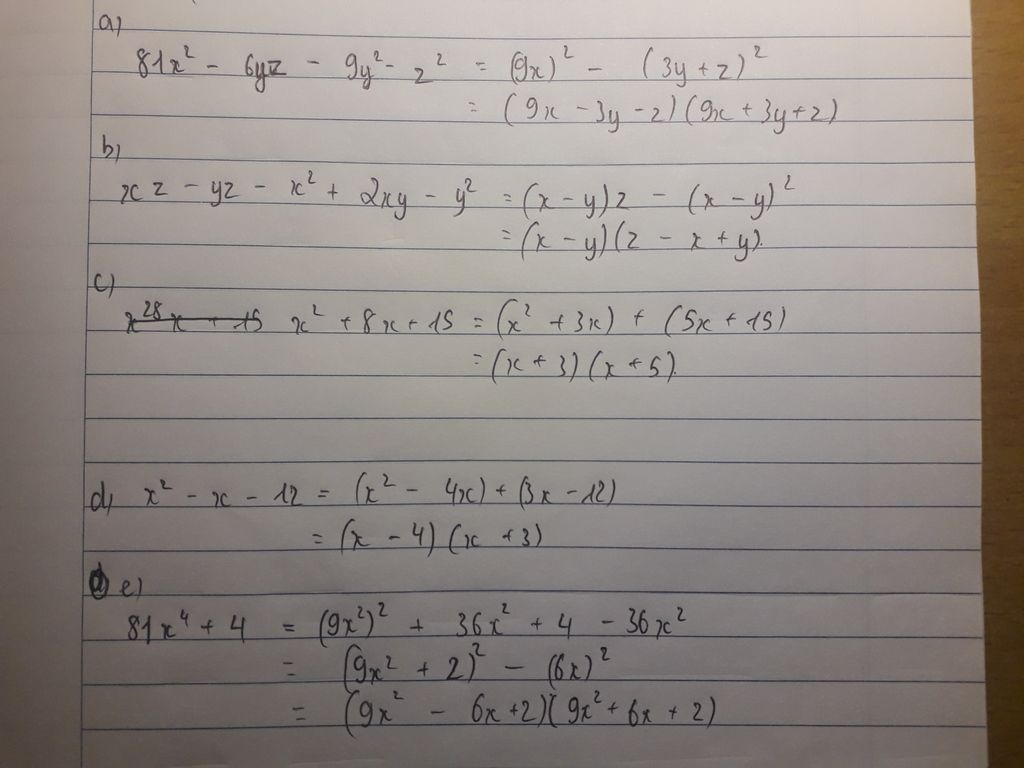 a)
81x² - 6yz - 9y² - z² = (9x)² - (3y + z)²
= (9x - 3y - z)(9x + 3y + z)
b)
xz - yz - x² + 2xy - y² = (x - y)z - (x - y)²
= (x - y)(z - x + y).
c)
x²8x + 15 x² + 8x + 15 = (x² + 3x) + (5x + 15)
= (x + 3)(x + 5).
d) x² - x - 12 = (x² - 4x) + (3x - 12)
= (x - 4)(x + 3)
e)
81x⁴ + 4 = (9x²)² + 36x² + 4 - 36x²
= (9x² + 2)² - (6x)²
= (9x² - 6x + 2)(9x² + 6x + 2)